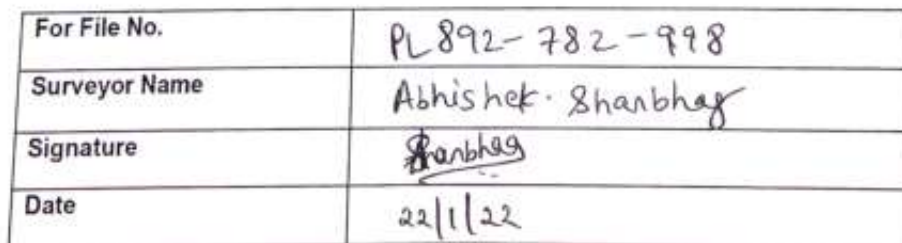 For File No. PL892-782-998
Surveyor Name Abhishek. Shanbhag
Signature Shanbhag
Date 22/1/22